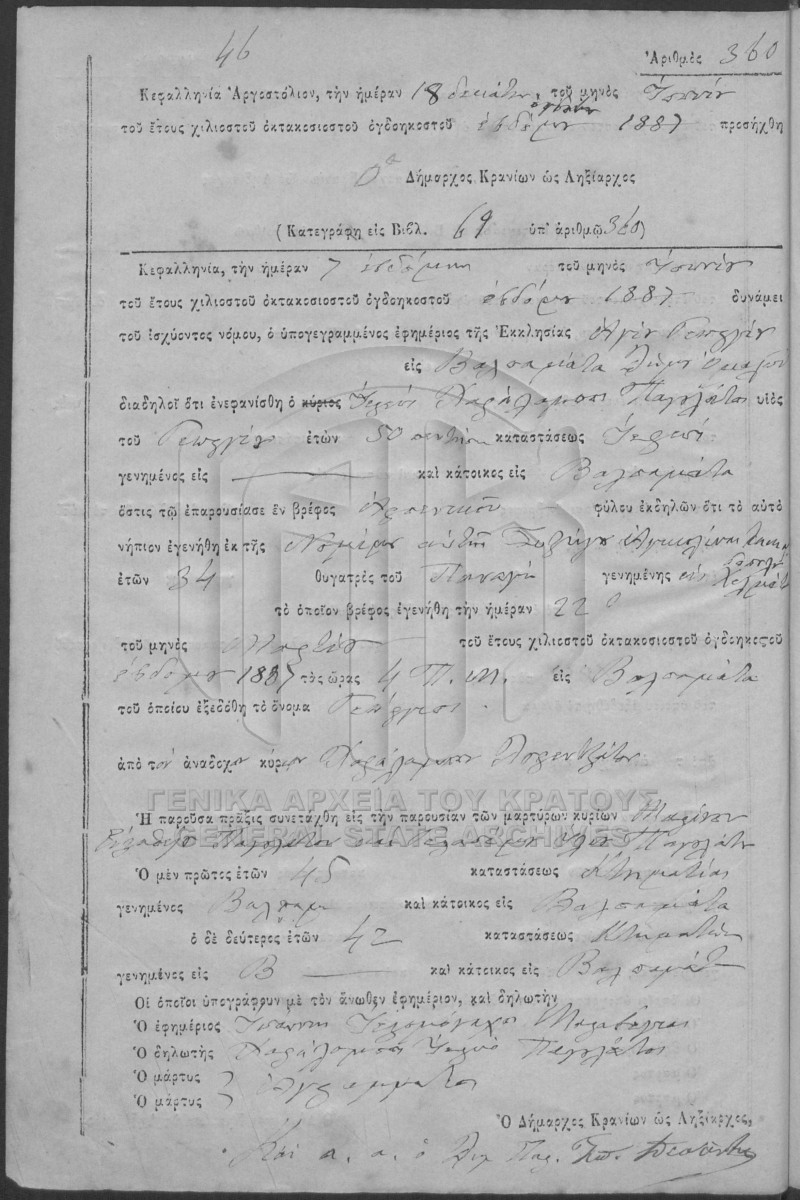 46
Ἀριθμὸς 360
Κεφαλληνία Ἀργοστόλιον, τὴν ἡμέραν 18 δεκάτην τοῦ μηνὸς Ἰουνίου
ὀγδόην
τοῦ ἔτους χιλιοστοῦ ὀκτακοσιοστοῦ ὀγδοηκοστοῦ ἑβδόμου 1887 προσήχθη
Ὁ Δήμαρχος Κρανίων ὡς Ληξίαρχος
(Κατεγράφη εἰς Βιβλ. 69 ὑπ' ἀριθμῷ 360)
Κεφαλληνία, τὴν ἡμέραν 7 ἑβδόμην τοῦ μηνὸς Ἰουνίου
τοῦ ἔτους χιλιοστοῦ ὀκτακοσιοστοῦ ὀγδοηκοστοῦ ἑβδόμου 1887 δυνάμει
τοῦ ἰσχύοντος νόμου, ὁ ὑπογεγραμμένος ἐφημέριος τῆς Ἐκκλησίας Ἁγίου Γεωργίου
εἰς Βαλσαμάτα Δήμου Ὁμαλῶν
διαδηλοῖ ὅτι ἐνεφανίσθη ὁ κύριος Ἱερεύς Χαράλαμπος Παγουλάτος υἱὸς
τοῦ Γεωργίου ἐτῶν 50 πεντήκοντα καταστάσεως Ἱερεύς
γενημένος εἰς καὶ κάτοικος εἰς Βαλσαμάτα
ὅστις τῷ ἐπαρουσίασε ἓν βρέφος Ἀρσενικοῦ φύλου ἐκδηλῶν ὅτι τὸ αὐτὸ
νήπιον ἐγενήθη ἐκ τῆς Νομίμου αὐτοῦ Συζύγου
ἐτῶν 34 θυγατρὸς τοῦ Παναγῆ γενημένης εἰς
τὸ ὁποῖον βρέφος ἐγενήθη τὴν ἡμέραν 22
τοῦ μηνὸς Μαρτίου τοῦ ἔτους χιλιοστοῦ ὀκτακοσιοστοῦ ὀγδοηκοστοῦ
ἑβδόμου 1887 τὰς ὥρας 4 Π. Μ. εἰς Βαλσαμάτα
τοῦ ὁποίου ἐξεδόθη τὸ ὄνομα Γεώργιος
ἀπὸ τὸν ἀνάδοχον κύριον Χαράλαμπον Λορεντζάτον
ΓΕΝΙΚΑ ΑΡΧΕΙΑ ΤΟΥ ΚΡΑΤΟΥΣ
Ἡ παροῦσα πρᾶξις συνετάχθη εἰς τὴν παρουσίαν τῶν μαρτύρων κυρίων Μαρίνου
GENERAL STATE ARCHIVES
Παγουλάτου καὶ Γερασίμου Παγουλάτου
Ὁ μὲν πρῶτος ἐτῶν 45 καταστάσεως Κτηματίας
γενημένος Βαλσαμ καὶ κάτοικος εἰς Βαλσαμάτα
ὁ δὲ δεύτερος ἐτῶν 42 καταστάσεως Κτηματίας
γενημένος εἰς Β καὶ κάτοικος εἰς Βαλσαμάτ
Οἱ ὁποῖοι ὑπογράφουν μὲ τὸν ἄνωθεν ἐφημέριον, καὶ δηλωτὴν
Ὁ ἐφημέριος Ἰωάννης Ἱερομόναχος
Ὁ δηλωτὴς Χαράλαμπος Ἱερεύς Παγουλάτος
Ὁ μάρτυς
Ὁ μάρτυς Ἀγράμματοι
Ὁ Δήμαρχος Κρανίων ὡς Ληξίαρχος,